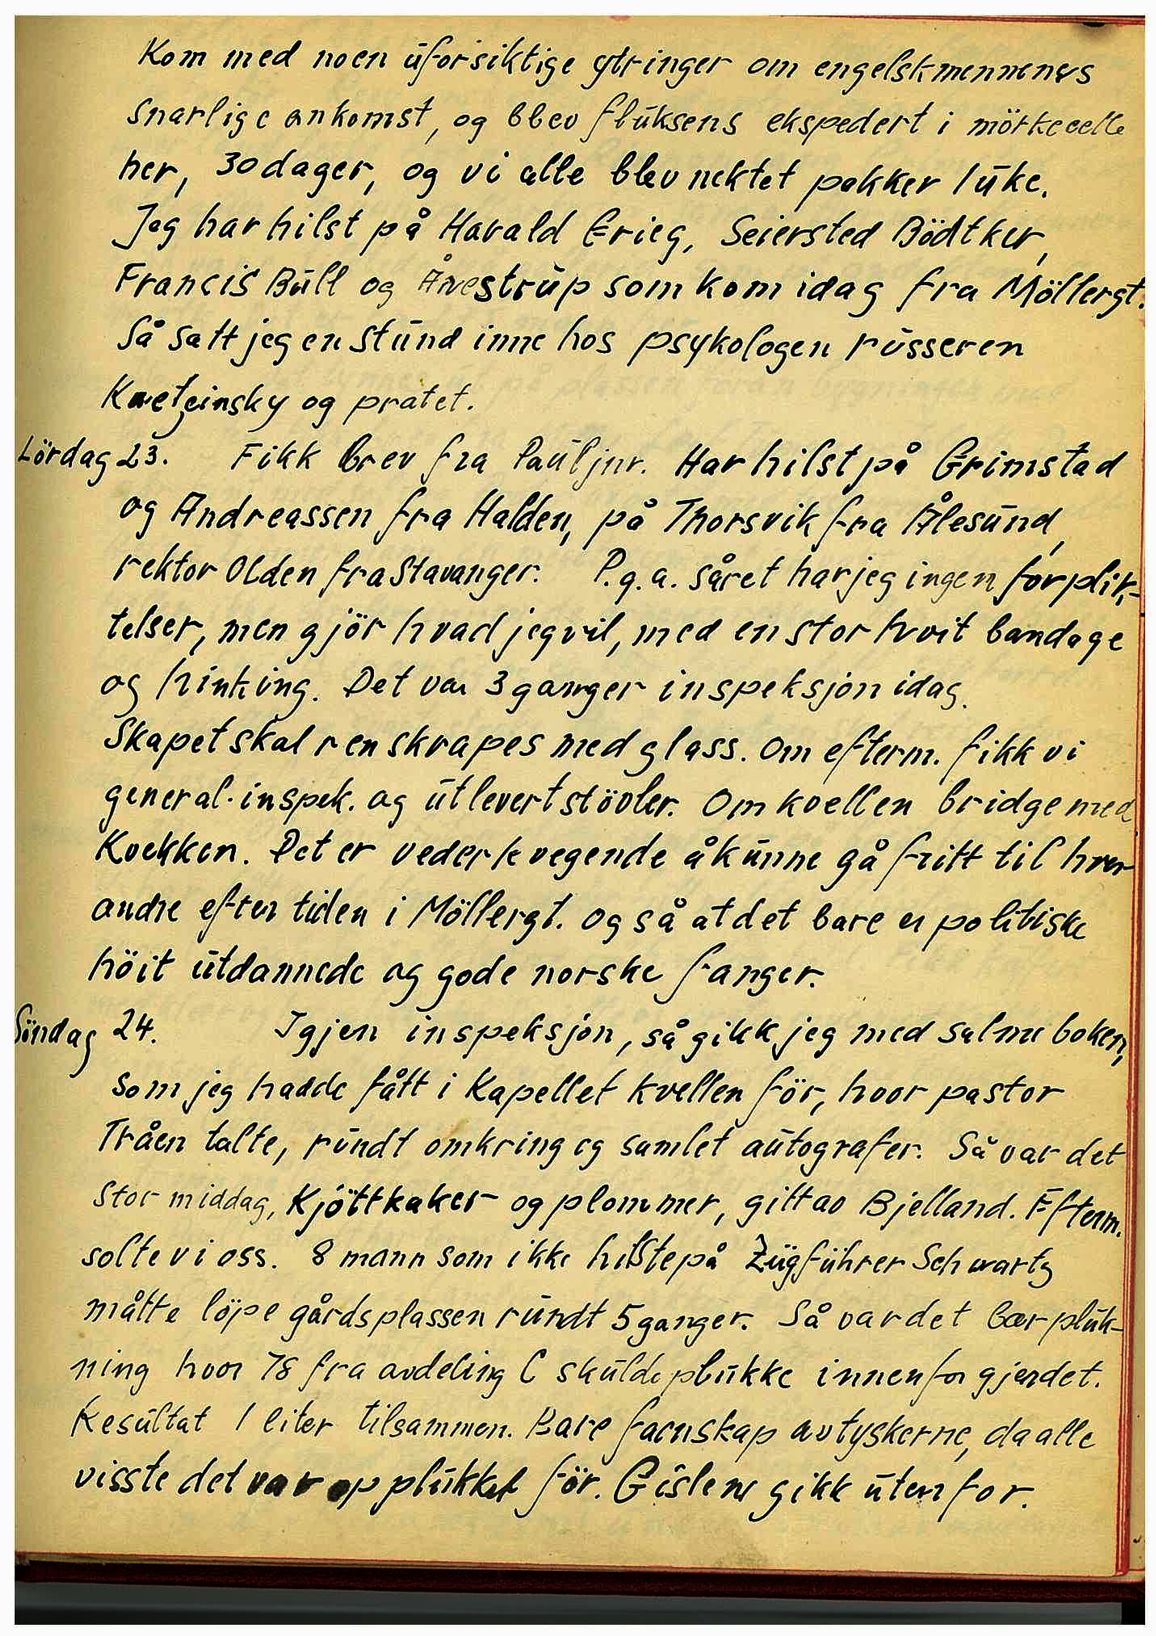 Kom med noen uforsiktige ytringer om engelskmennenes
snarlige ankomst, og blev fluksens ekspedert i mörkecelle
her, 30 dager, og vi alle blev nektet pakker 1 uke.
Jeg har hilst på Harald Grieg, Seiersted Bödtker,
Francis Bull og Ånestrup som kom idag fra Möllergt.
Så satt jeg en stund inne hos psykologen russeren
og pratet.
Lördag 23. Fikk brev fra Paul jnr. Har hilst på Grimstad
og Andreassen fra Halden, på Thorsvik fra Ålesund,
rektor Olden fra Stavanger. P.g.a. såret har jeg ingen forplik-
telser, men gjör hvad jeg vil, med en stor hvit bandage
og hinking. Det var 3 ganger inspeksjon idag.
Skapet skal renskrapes med glass. Om efterm. fikk vi
general-inspek. og utlevert stövler. Om kvellen bridge med
Kvekken. Det er vederkvegende å kunne gå fritt til hver-
andre efter tiden i Möllergt. og så at det bare er politiske
höit utdannede og gode norske fanger.
Söndag 24. Igjen inspeksjon, så gikk jeg med salmeboken,
som jeg hadde fått i Kapellet kvellen för, hvor pastor
Tråen talte, rundt omkring og samlet autografer. Så var det
stor middag, Kjöttkaker og plommer, gitt av Bjelland. Efterm.
solte vi oss. 8 mann som ikke hilste på Zugführer Schwartz
måtte löpe gårdsplassen rundt 5 ganger. Så var det bærpluk-
ning hvor 78 fra avdeling C skulde plukke innenfor gjerdet.
Resultat 1 liter tilsammen. Bare faenskap av tyskerne, da alle
visste det var opplukket för. Gislene gikk utenfor.